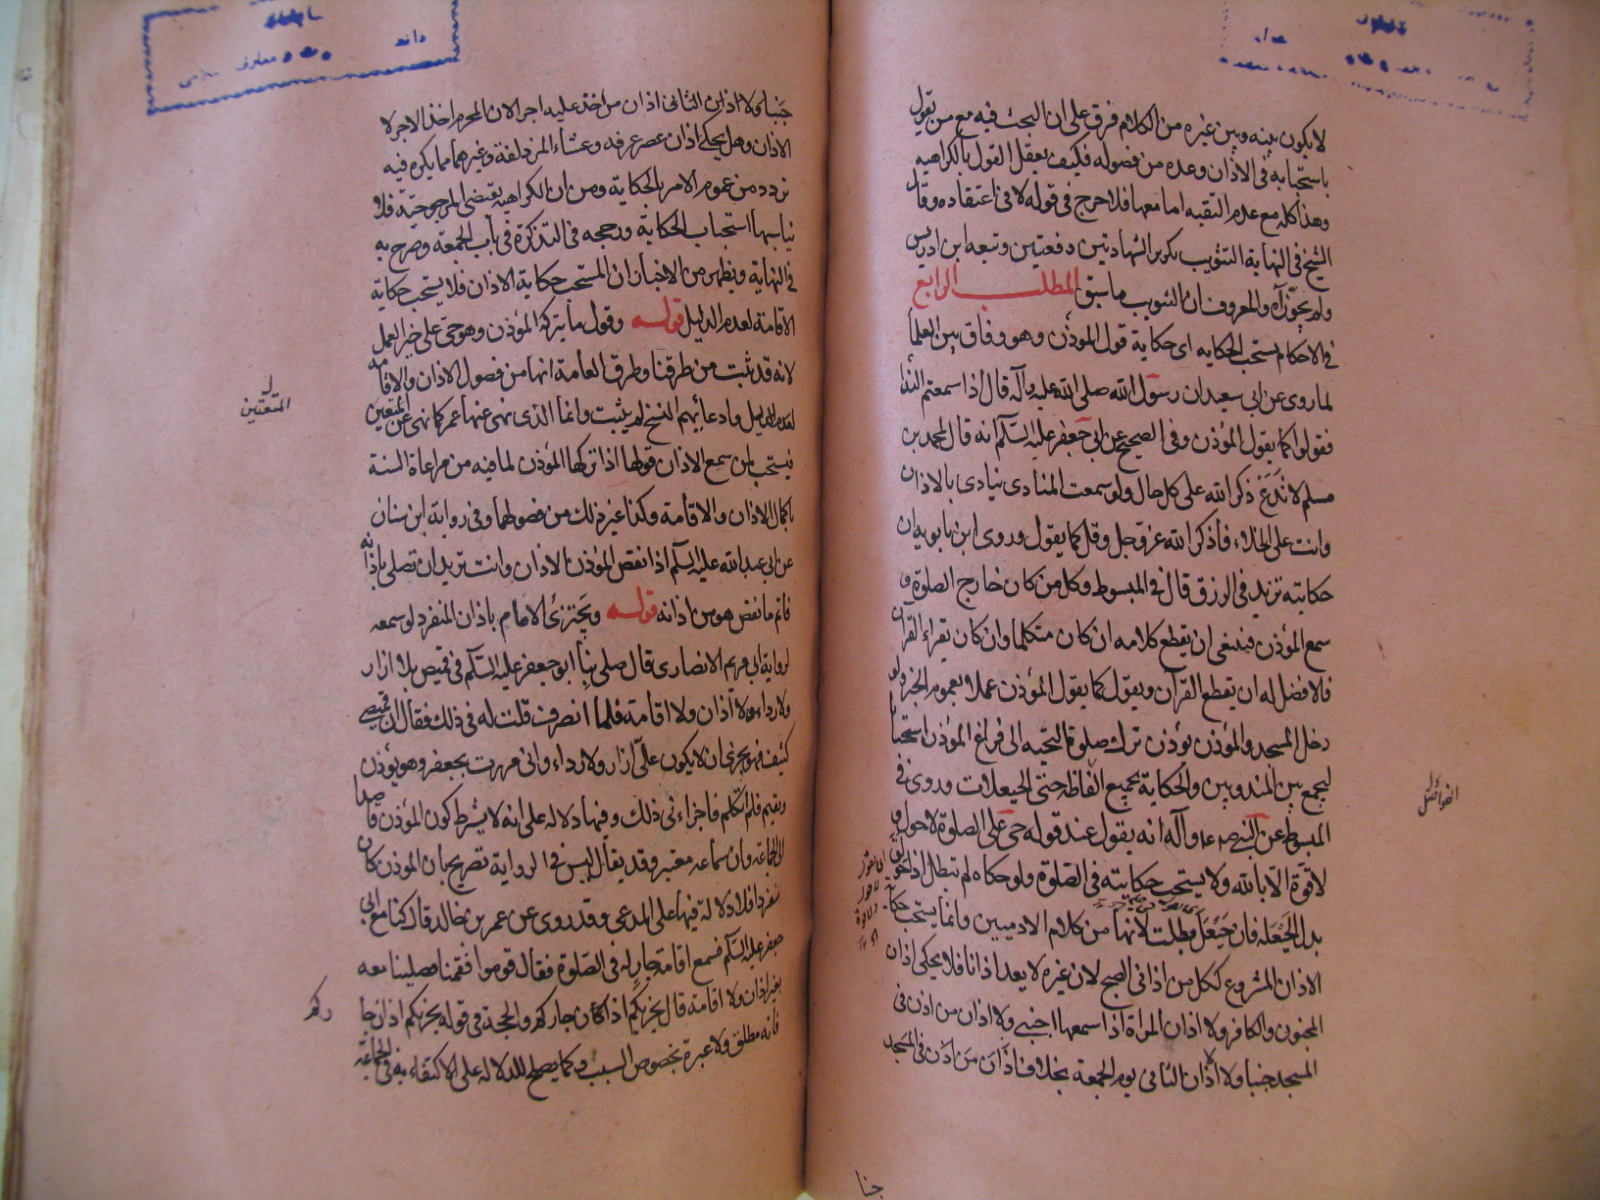 لا يكون بينه وبين غيره من الكلام فرق على ان البحث فيه مع من يقول
باستحبابه في الاذان وعده من فصوله فكيف يعقل القول بالكراهيه
وهذا كله مع عدم التقيه اما معها فلا حرج في قوله لا في اعتقاده وقال
الشيخ في النهاية التثويب تكرير الشهادتين دفعتين وتبعه ابن ادريس
ولم يجوزاه والمعروف ان التثويب ما سبق المطلب الرابع
في الاحكام يستحب الحكايه اى حكاية قول المؤذن وهو وفاق بين العلماء
لما روى عن ابى سعيد ان رسول الله صلى الله عليه وآله قال اذا سمعتم النداء
فقولوا كما يقول المؤذن وفى الصحيح عن ابى جعفر عليه السلم انه قال لمحمد بن
مسلم لا تدع ذكر الله على كل حال ولو سمعت المنادى ينادى بالاذان
وانت على الخلاء فأذكر الله عز وجل وقل كما يقول وروى ابن بابويه ان
حكايته تزيد فى الرزق قال فى المبسوط وكل من كان خارج الصلوة و
سمع المؤذن فينبغى ان يقطع كلامه ان كان متكلما وان كان يقراء القرآن
فالافضل له ان يقطع القرآن ويقول كما يقول المؤذن عملا بعموم الخبر ولو
دخل المسجد والمؤذن يؤذن ترك صلوة التحيه الى فراغ المؤذن استحبابا
ليجمع بين المندوبين والحكاية بجميع الفاظه حتى الحيعلات وروى فى
المبسوط عن النبى صلى الله عليه وآله انه يقول عند قوله حى على الصلوة لا حول و
لا قوة الا بالله ولا يستحب حكايته فى الصلوة ولو حكاه لم تبطل اذا حولق
بدل الحيعله فان حيعل بطلت لانها من كلام الادميين وانما يستحب حكاية
الاذان المشروع ككل من اذانى الصبح لان غيره لا يعد اذانا فلا يحكى اذان
المجنون والكافر ولا اذان المراة اذا سمعها اجنبى ولا اذان من اذن فى
المسجد جنبا ولا الاذان الثانى يوم الجمعة بخلاف اذان من اذن فى المسجد
الفواصل
جنبا
جنبا ولا اذان الثانى اذان من اخذ عليه اجرا لان المحرم اخذ الاجر لا
الاذان وهل يحكى اذان عصر عرفه وعشاء المزدلفة وغيرهما مما يكره فيه
تردد من عموم الامر بالحكاية ومن ان الكراهية يقتضى المرجوحيّة فلا
يناسبها استحباب الحكاية ورجحه فى التذكرة فى باب الجمعة وصرح به
فى النهاية ويظهر من الاخبار ان المستحب حكاية الاذان فلا يستحب حكاية
الاقامة لعدم الدليل قوله وقول ما يتركه المؤذن وهو حى على خير العمل
لانه قد ثبت من طرقنا وطرق العامة انها من فصول الاذان والاقامة
لعدم الدليل وادعائهم النسخ لم يثبت وانما الذى نهى عنها عمر كما نهى عن المتعتين
فيستحب لمن سمع الاذان قولها اذا تركها المؤذن لما فيه من مراعاة السنة
باكمال الاذان والاقامة وكذا غير ذلك من فصولهما وفى رواية ابن سنان
عن ابى عبد الله عليه السلم اذا نقص المؤذن الاذان وانت تريد ان تصلى باذانه
فاتم ما نقص هو من اذانه قوله ويجتزئ الامام باذان المنفرد لو سمعه
لرواية ابى مريم الانصارى قال صلى بنا ابو جعفر عليه السلم فى قميص بلا ازار
ولا رداء ولا اذان ولا اقامة فلما انصرف قلت له فى ذلك فقال ان قميصى
كثيف فهو يجزى ان لا يكون علىّ ازار ولا رداء وانى مررت بجعفر وهو يؤذن
ويقيم فلم اتكلم فاجزاءنى ذلك وفيها دلاله على انه لا يشرط كون المؤذن قاصدا
الى الجماعة وان سماعه معتبر وقد يقال ليس فى الرواية تصريح بان المؤذن كان
منفردا فلا دلالة فيها على المدعى وقد روى عن عمر بن خالد قال كنا مع ابى
جعفر عليه السلم فسمع اقامة جار له فى الصلوة فقال قوموا فقمنا فصلينا معه
بغير اذان ولا اقامة قال يجزيكم اذا كان جاركم والحجة فى قوله يجزيكم اذان جا
ركم
فانه مطلق ولا عبرة بخصوص السبب وكما يصلح للدلاله على الاكتفاء به فى الجماعة
المتعتين